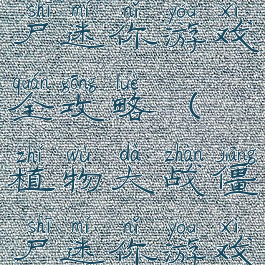 shī mí nǐ yóu xì
尸迷你游戏
quán gōng lüè
全攻略（
zhí wù dà zhàn jiāng
植物大战僵
shī mí nǐ yóu xì
尸迷你游戏